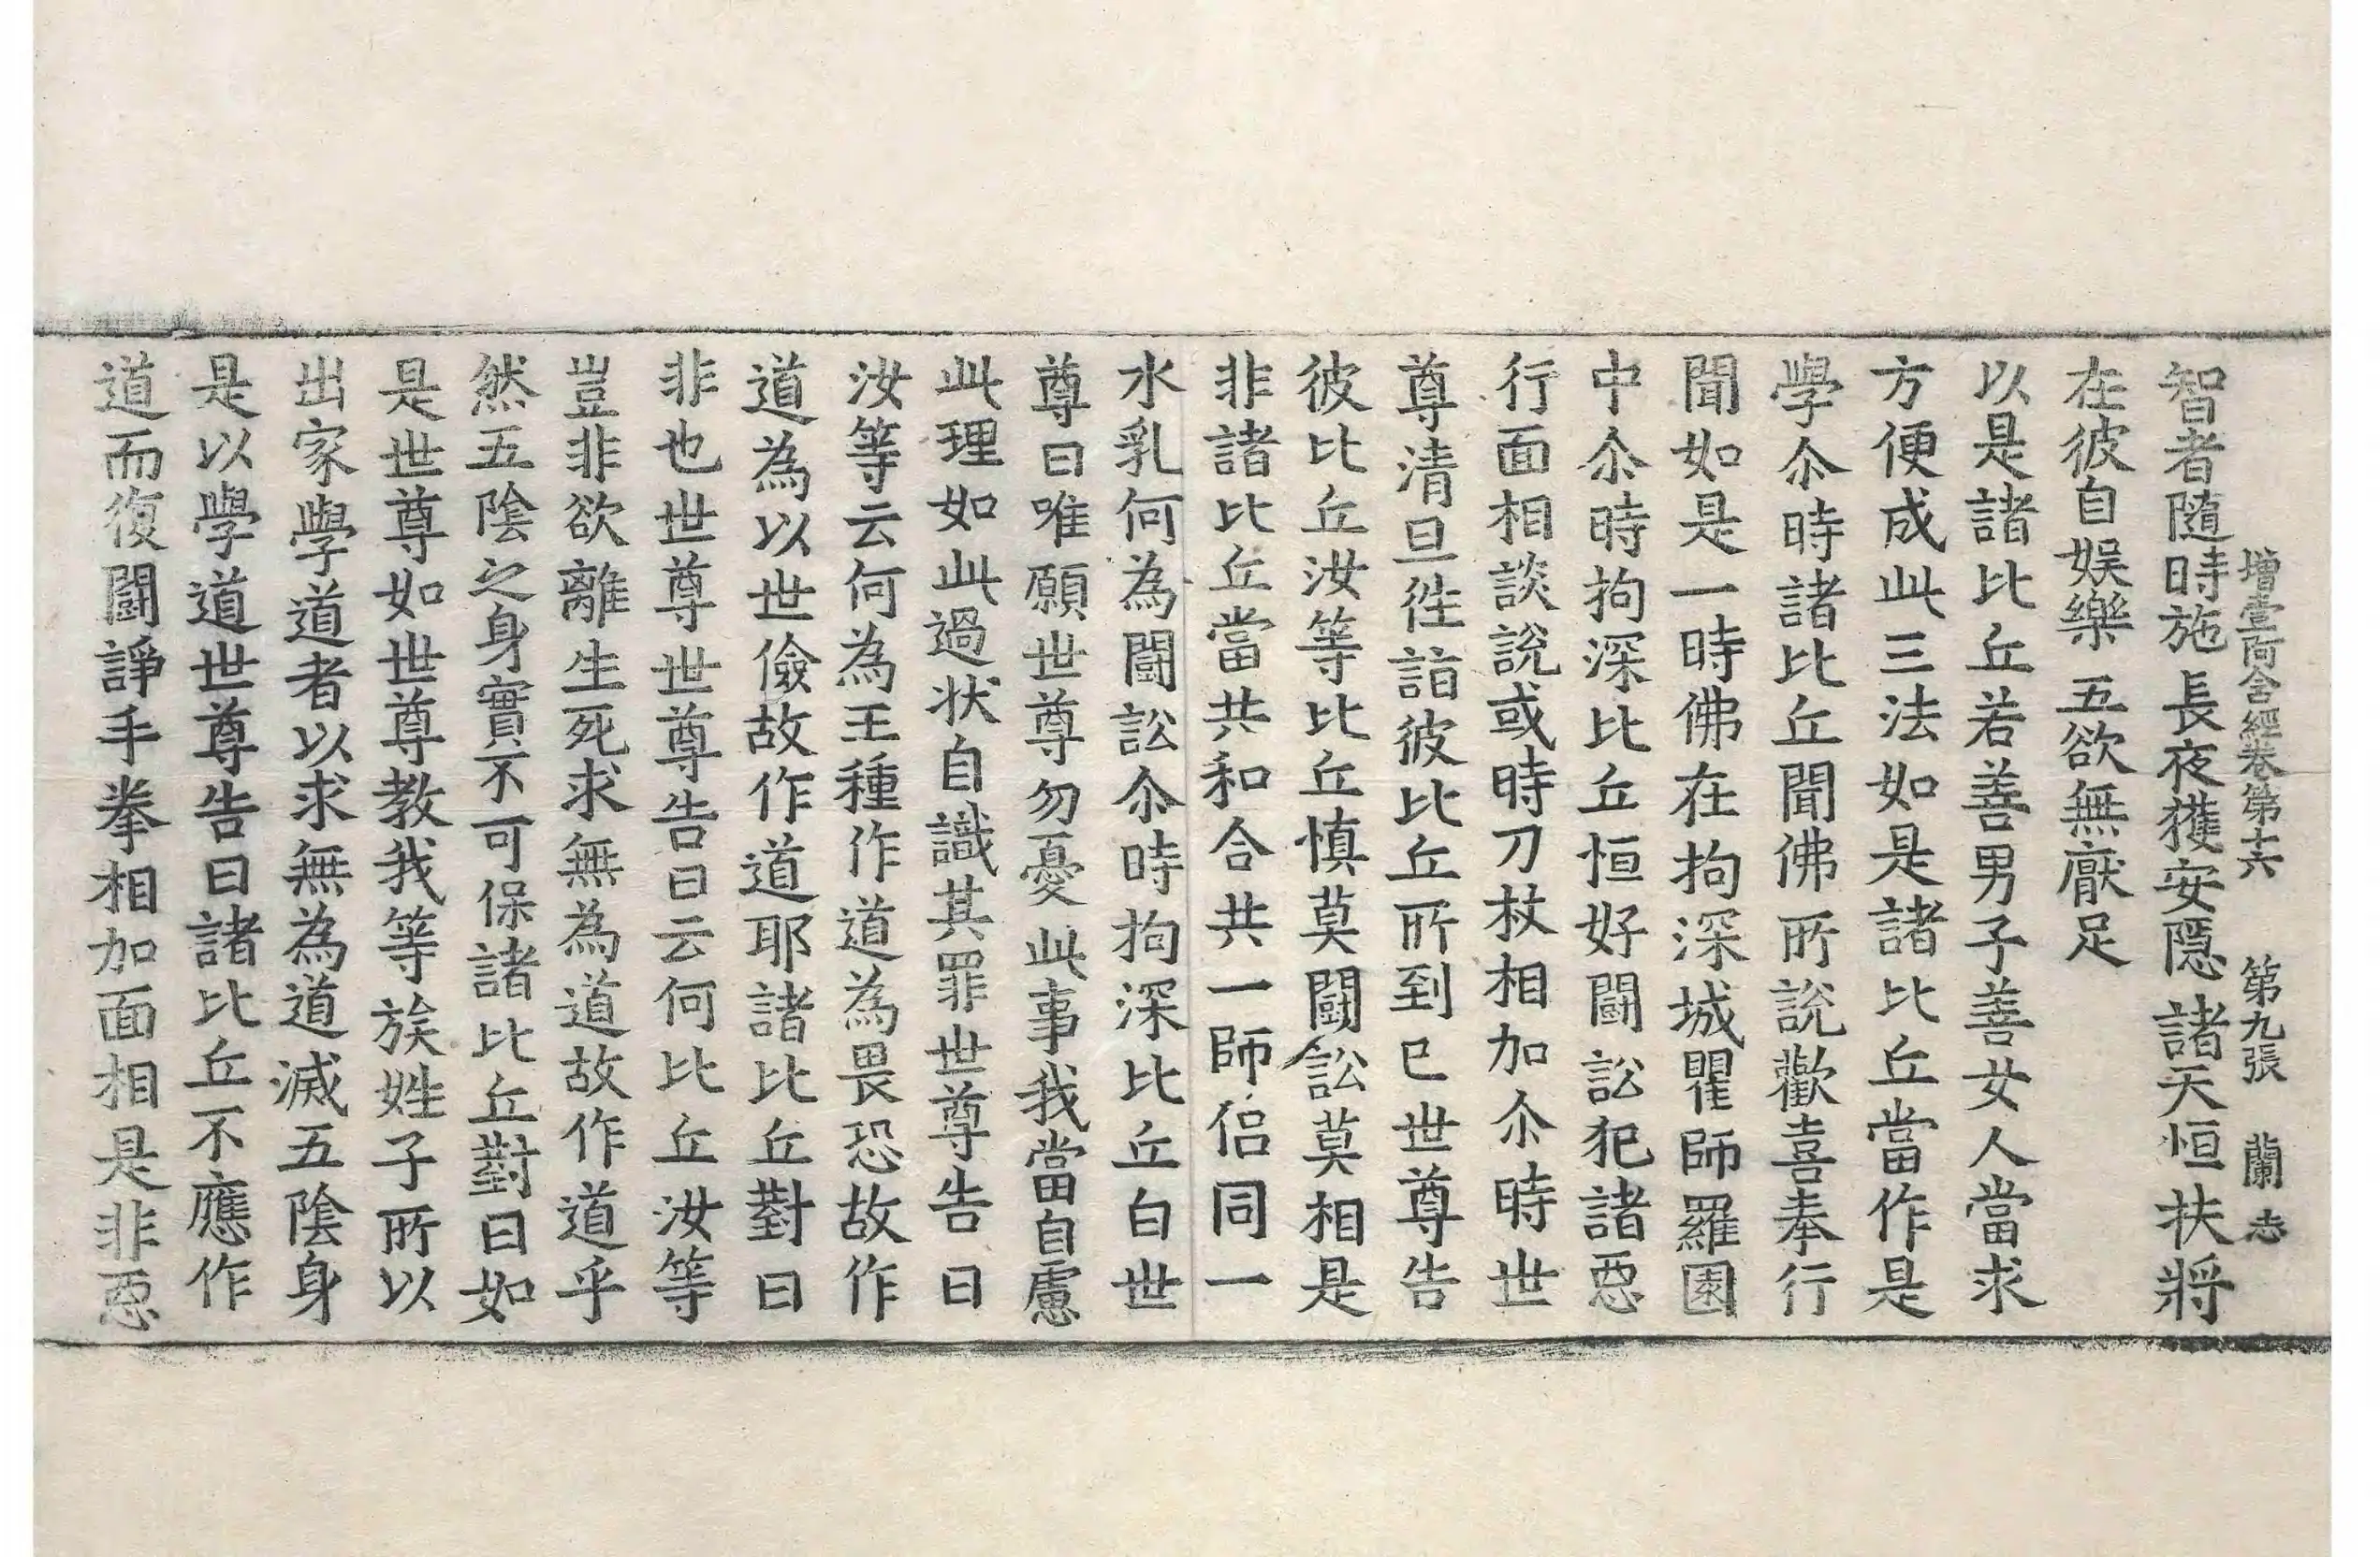 增壹阿含經卷第十六 第九張 蘭 志
智者隨時施 長夜獲安隱 諸天恒扶將
在彼自娛樂 五欲無厭足
以是諸比丘若善男子善女人當求
方便成此三法如是諸比丘當作是
學尒時諸比丘聞佛所說歡喜奉行
聞如是一時佛在拘深城瞿師羅園
中尒時拘深比丘恒好鬪訟犯諸惡
行面相談說或時刀杖相加尒時世
尊清旦往詣彼比丘所到已世尊告
彼比丘汝等比丘慎莫鬪訟莫相是
非諸比丘當共和合共一師侣同一
水乳何為鬪訟尒時拘深比丘白世
尊曰唯願世尊勿憂此事我當自慮
此理如此過状自識其罪世尊告曰
汝等云何為王種作道為畏恐故作
道為以世儉故作道耶諸比丘對曰
非也世尊世尊告曰云何比丘汝等
豈非欲離生死求無為道故作道乎
然五陰之身實不可保諸比丘對曰如
是世尊如世尊教我等族姓子所以
出家學道者以求無為道滅五陰身
是以學道世尊告曰諸比丘不應作
道而復鬪諍手拳相加面相是非惡